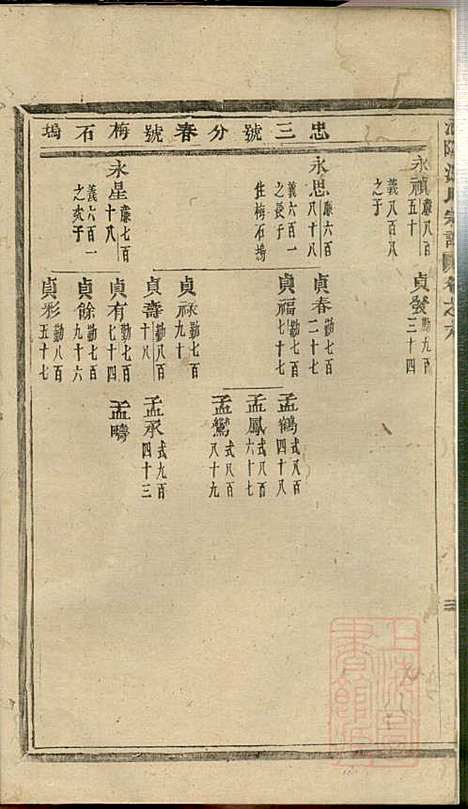 忠三號分春號梅石塢
永禎
廉八百
五十
義八百八
之子
永思
廉六百
八十八
義六百一
之長子
住梅石塢
永星
廉七百
十八
義六百一
之次子
貞發
勤九百
三十四
貞春
勤七百
二十七
貞福
勤七百
七十七
貞祿
勤七百
九十
貞壽
勤八百
十八
貞有
勤七百
七十四
貞餘
勤七百
九十六
貞彩
勤八百
五十七
孟鶴
式八百
四十八
孟鳳
式八百
六十七
孟鸞
式八百
八十九
孟承
式九百
四十三
孟疇
三